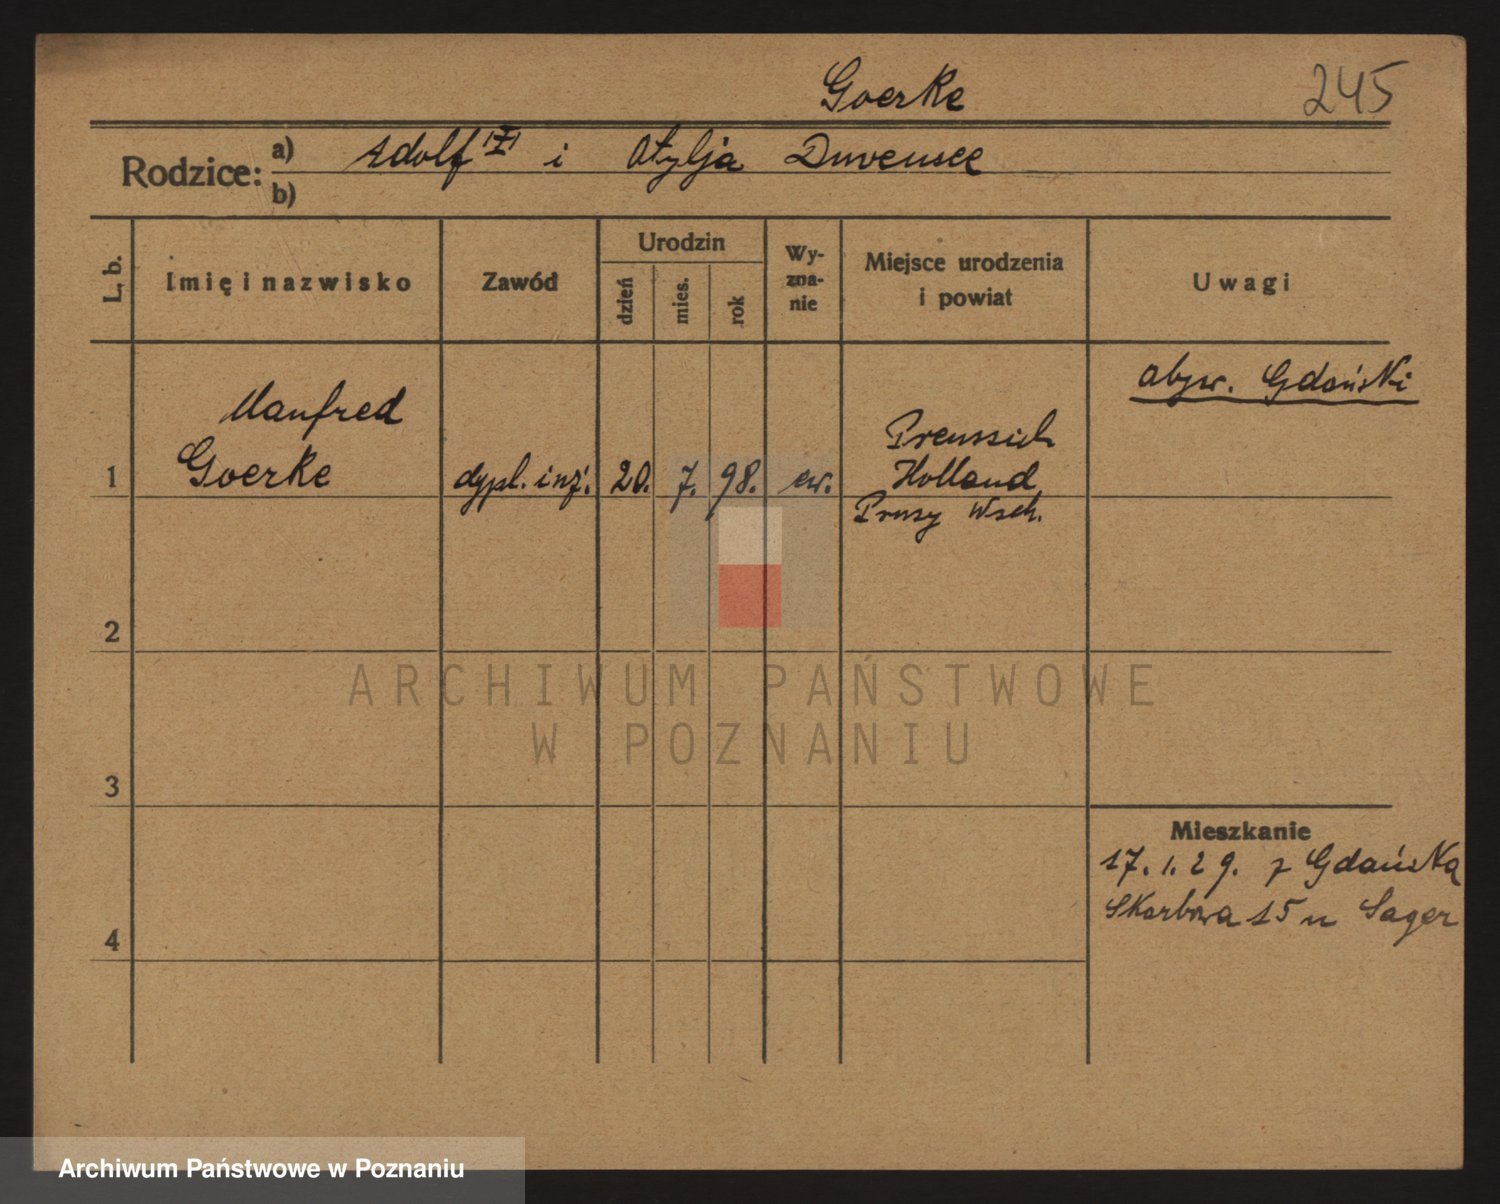 Goerke 245
Rodzice: a) Adolf i Otylja Duvensee
b)
L. b. Imię i nazwisko Zawód Urodzin dzień mies. rok Wy-zna-nie Miejsce urodzenia i powiat Uwagi
obyw. Gdański
Manfred
Goerke
1 dypl. inż. 20. 7. 98. ew.
Preussich
Holland
Prusy Wsch.
2
ARCHIWUM PAŃSTWOWE
W POZNANIU
3
Mieszkanie
17. 1. 29. z Gdańska
Skarbowa 15 u Sager
4
Archiwum Państwowe w Poznaniu